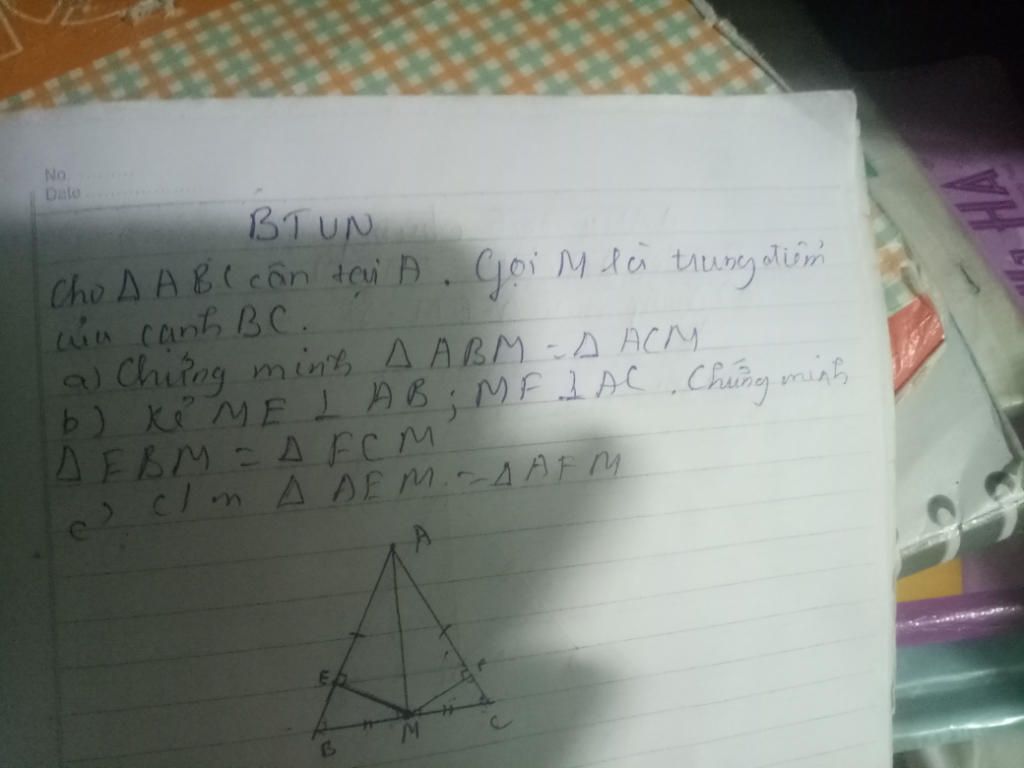 No
Date
BTVN
Cho Δ ABC cân tại A. Gọi M là trung điểm
của cạnh BC.
a) Chứng minh Δ ABM = Δ ACM
b) Kẻ ME ⊥ AB; MF ⊥ AC. Chứng minh
Δ EBM = Δ FCM
c) C/m Δ AEM = Δ AFM
A
E F
B M C
HA